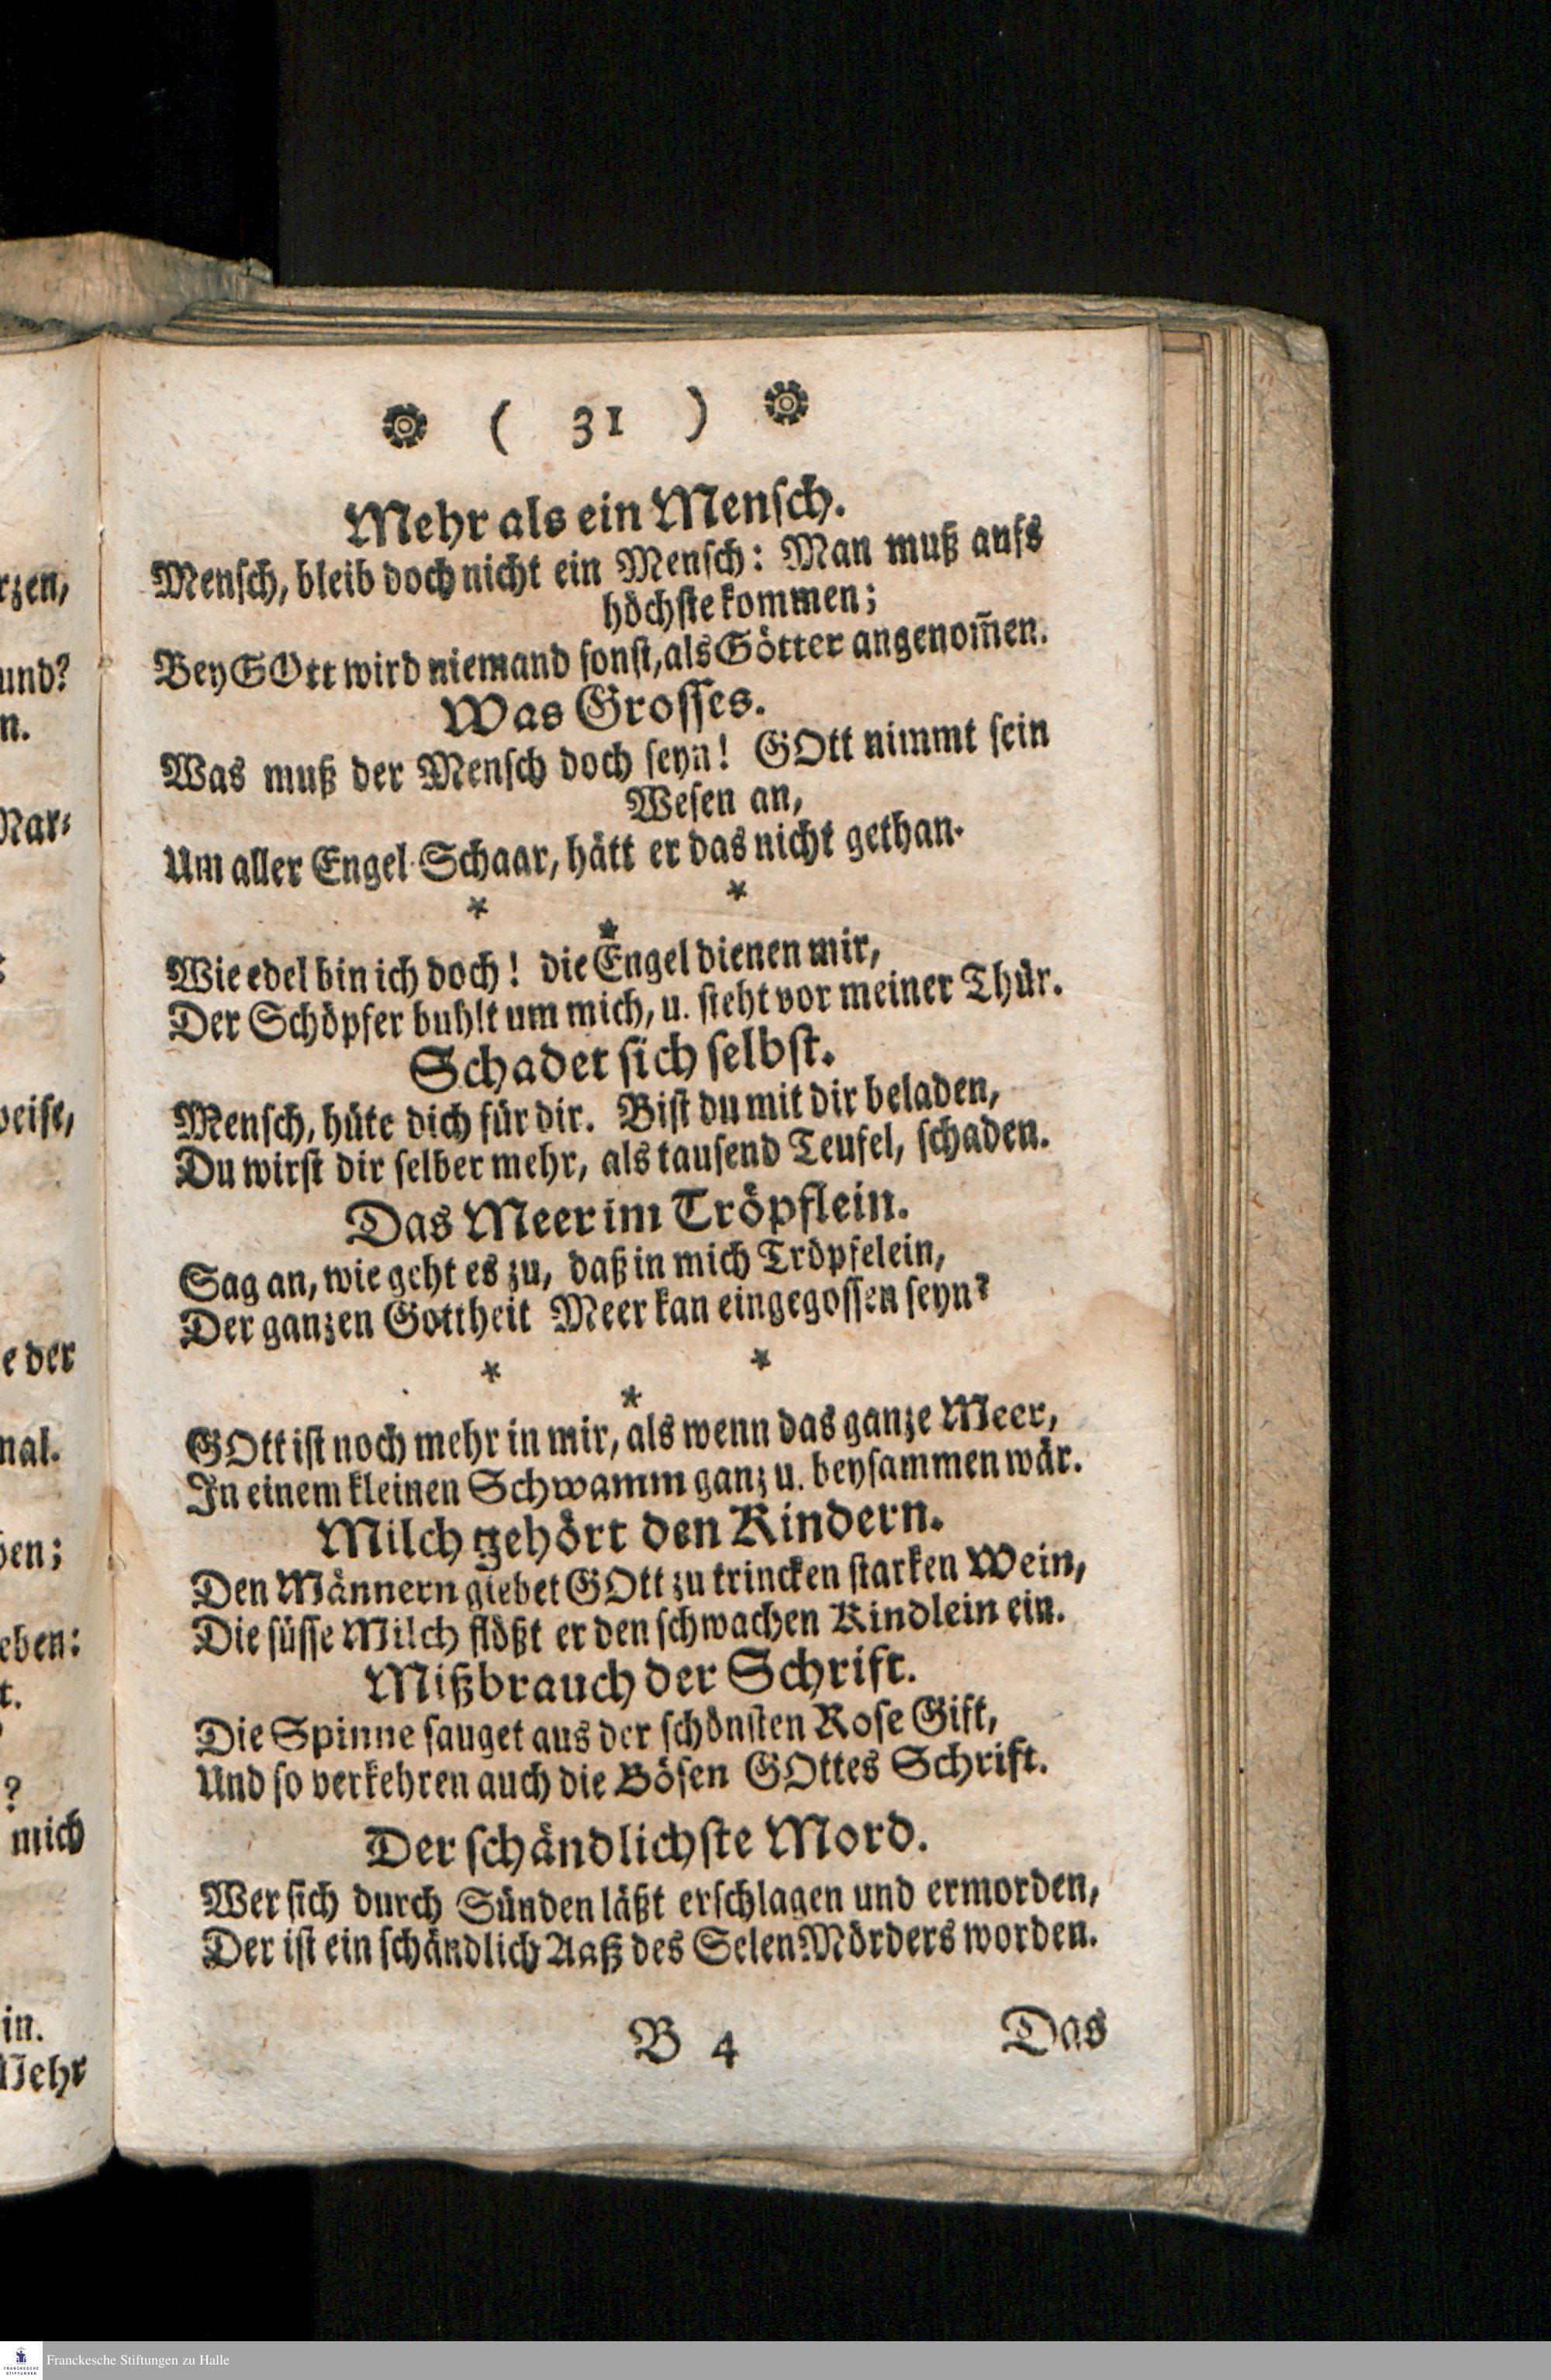 ( 31 )
Mehr als ein Mensch.
Mensch, bleib doch nicht ein Mensch: Man muß aufs
höchste kommen;
Bey GOtt wird niemand sonst, als Götter angenom̄en.
Was Grosses.
Was muß der Mensch doch seyn! GOtt nimmt sein
Wesen an,
Um aller Engel-Schaar, hätt er das nicht gethan.
* * *
Wie edel bin ich doch! die Engel dienen mir,
Der Schöpfer buhlt um mich, u. steht vor meiner Thür.
Schadet sich selbst.
Mensch, hüte dich für dir. Bist du mit dir beladen,
Du wirst dir selber mehr, als tausend Teufel, schaden.
Das Meer im Tröpflein.
Sag an, wie geht es zu, daß in mich Tröpfelein,
Der ganzen Gottheit Meer kan eingegossen seyn?
* * *
GOtt ist noch mehr in mir, als wenn das ganze Meer,
In einem kleinen Schwamm ganz u. beysammen wär.
Milch gehört den Kindern.
Den Männern giebet GOtt zu trincken starken Wein,
Die süsse Milch flößt er den schwachen Kindlein ein.
Mißbrauch der Schrift.
Die Spinne sauget aus der schönsten Rose Gift,
Und so verkehren auch die Bösen GOttes Schrift.
Der schändlichste Mord.
Wer sich durch Sünden läßt erschlagen und ermorden,
Der ist ein schändlich Aaß des Selen-Mörders worden.
B 4 Das
rzen,
und?
n.
Nar-
weise,
e der
mal.
ben;
eben:
t.
?
mich
in.
Mehr
Franckesche Stiftungen zu Halle